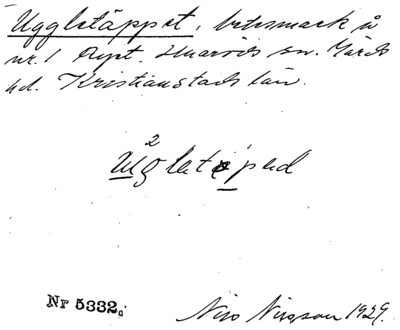 Uggletäppet, betesmark å
nr. 1 Rynt. Huaröds sn. Gärds
hd. Kristianstads län.
2
Ugletepad
Nr 5332.
Nils Nilsson 1929.